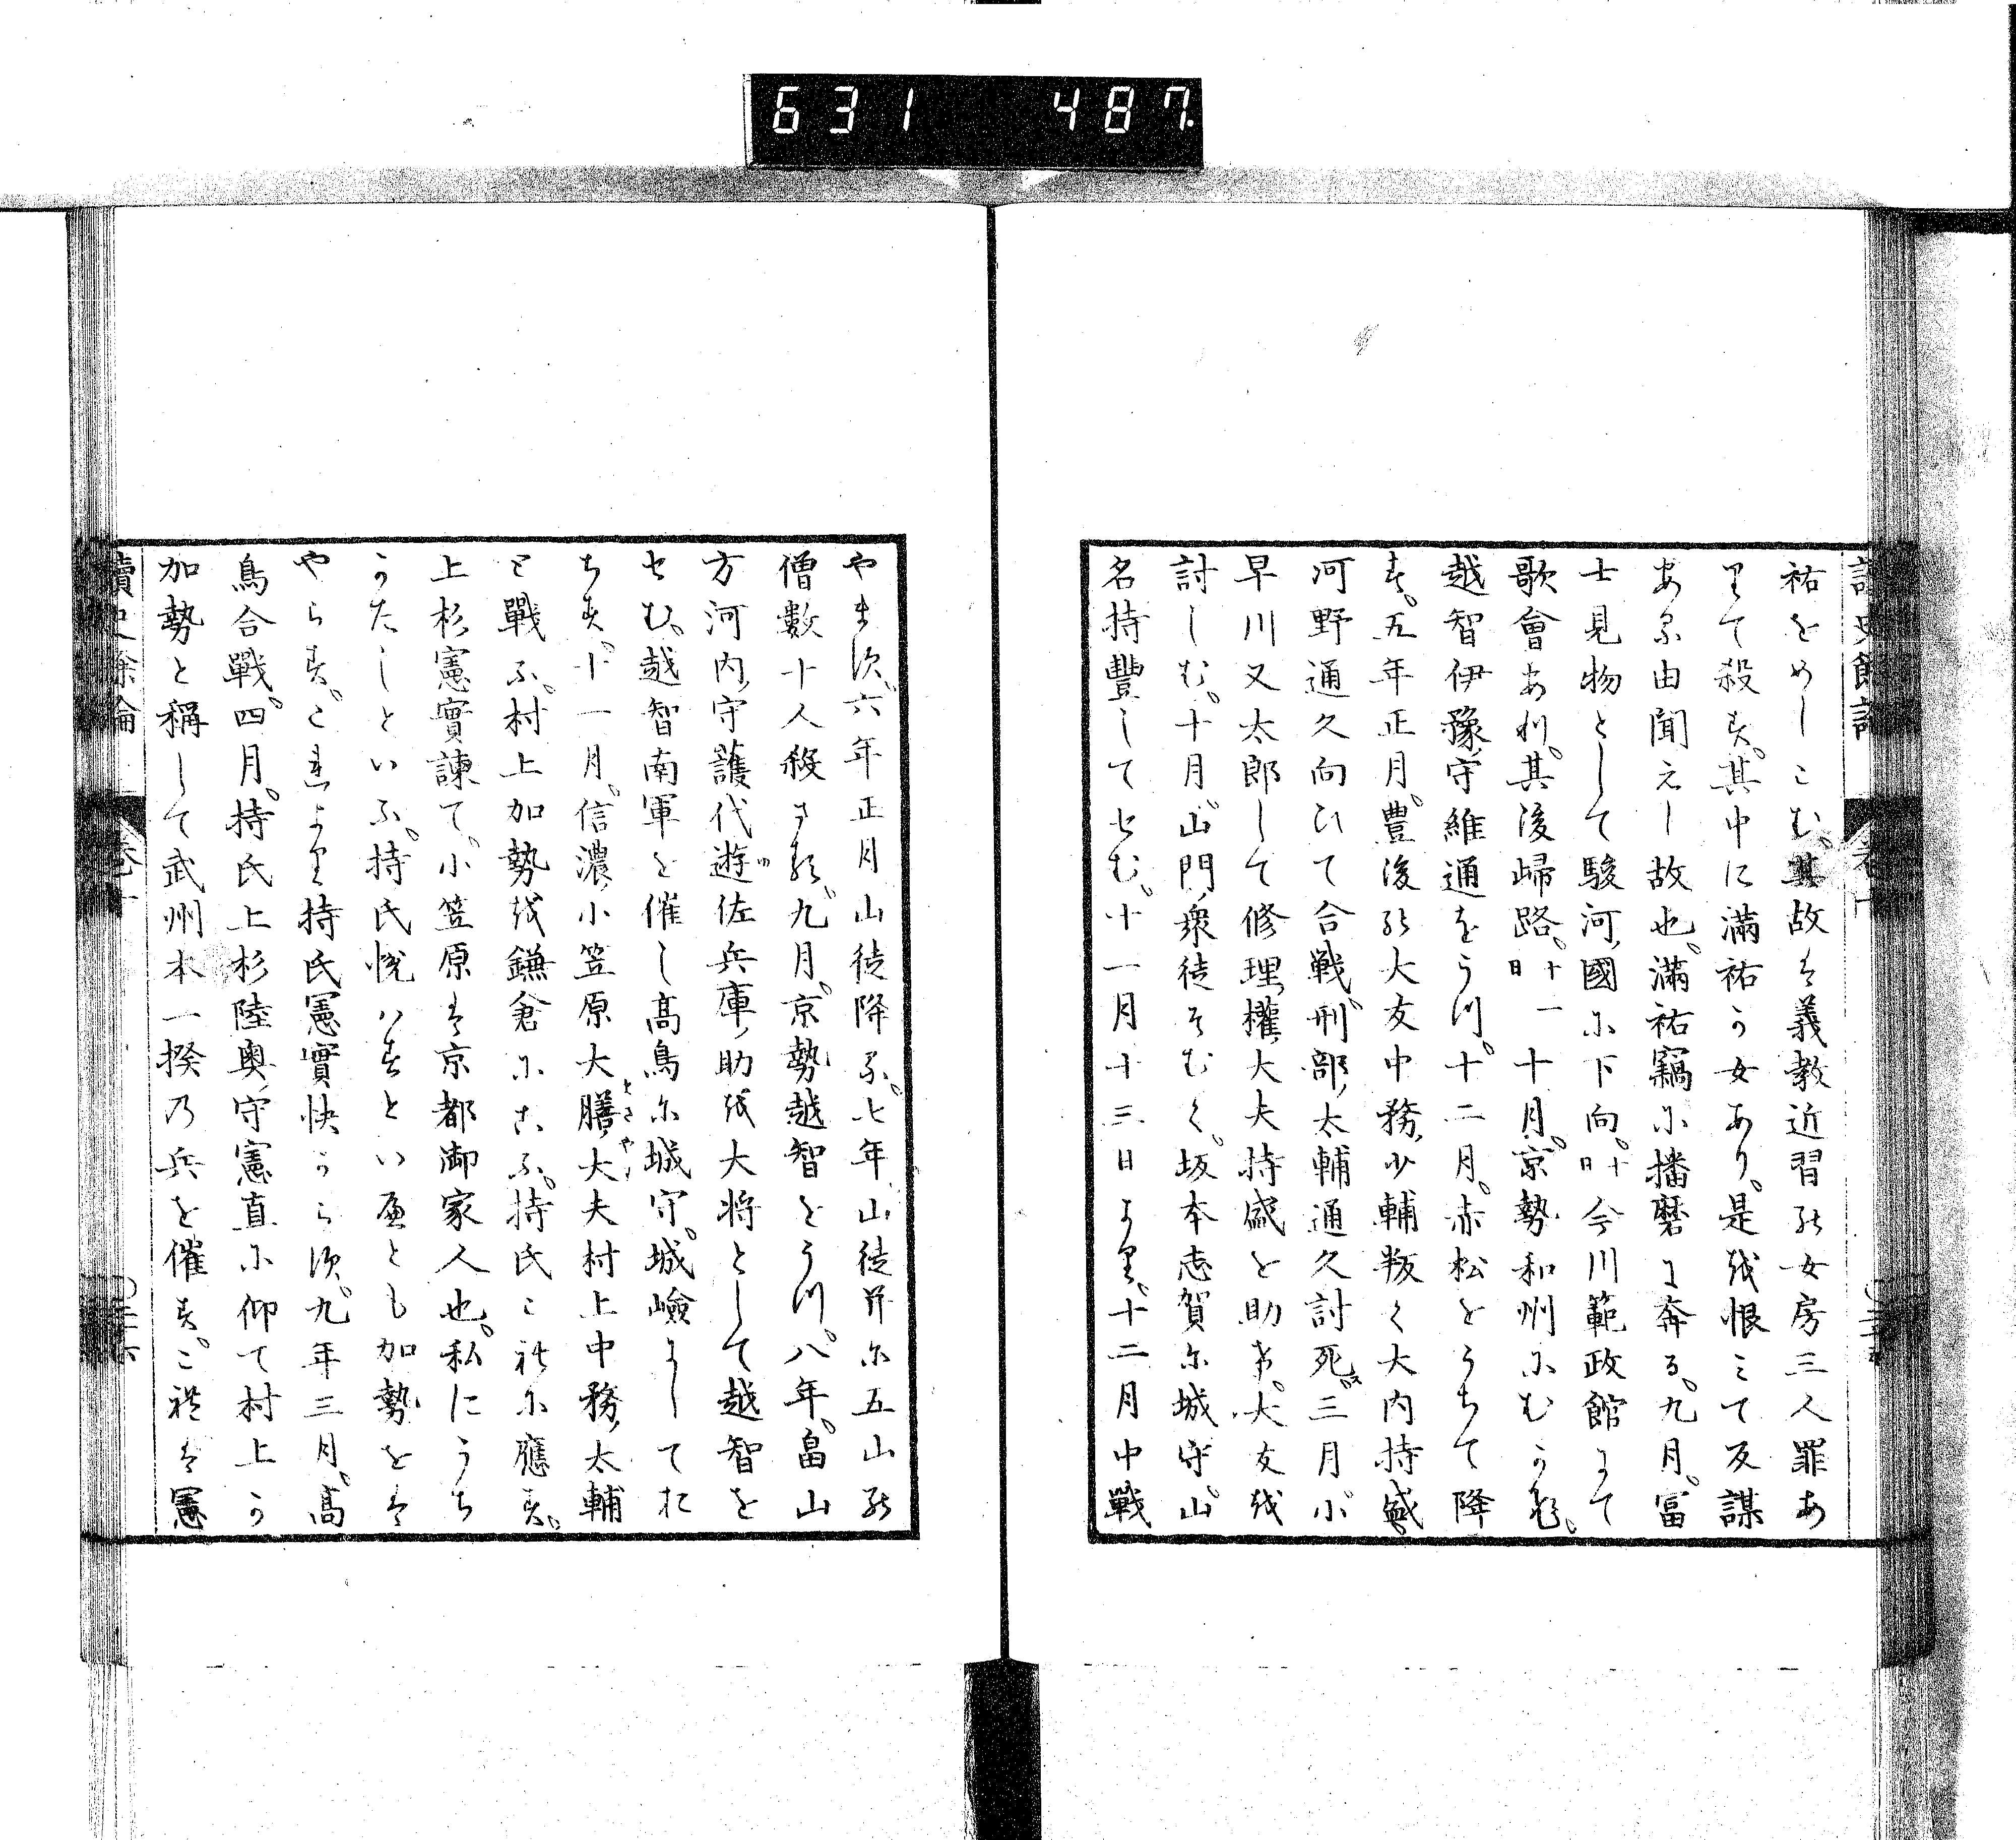 631 487
祐をめしこむ。其故は義教近習の女房三人罪あ
りて殺す。其中に満祐か女あり。是を恨みて反謀
ある由聞えし故也。満祐竊に播磨に奔る。九月。冨
士見物として駿河國に下向。十日今川範政館にて
歌會あり。其後歸路。十一日十月。京勢和州にむかふ。
越智伊豫守維通をうつ。十二月。赤松をうちて降
す。五年正月。豊後の大友中務少輔叛く大内持盛
河野通久向ひて合戦。刑部太輔通久討死。三月小
早川又太郎して修理權大夫持盛を助す。大友を
討しむ。十月。山門衆徒そむく。坂本志賀に城守。山
名持豐してせむ。十一月十三日より。十二月中戦
やます。六年正月山徒降る。七年山徒并に五山の
僧數十人殺さる。九月。京勢越智をうつ。八年。畠山
方河内守護代遊佐兵庫助を大将として越智を
せむ。越智南軍を催し高鳥に城守。城嶮にしてお
ちす。十一月。信濃小笠原大膳大夫村上中務太輔
と戰ふ。村上加勢を鎌倉にこふ。持氏これに應す。
上杉憲實諫て。小笠原は京都御家人也。私にうち
かたしといふ。持氏悦はすといへとも加勢をは
やらす。これより持氏憲實快からす。九年三月。高
鳥合戰。四月。持氏上杉陸奥守憲直に仰て村上か
加勢と稱して武州本一揆乃兵を催す。これは憲
讀史餘論